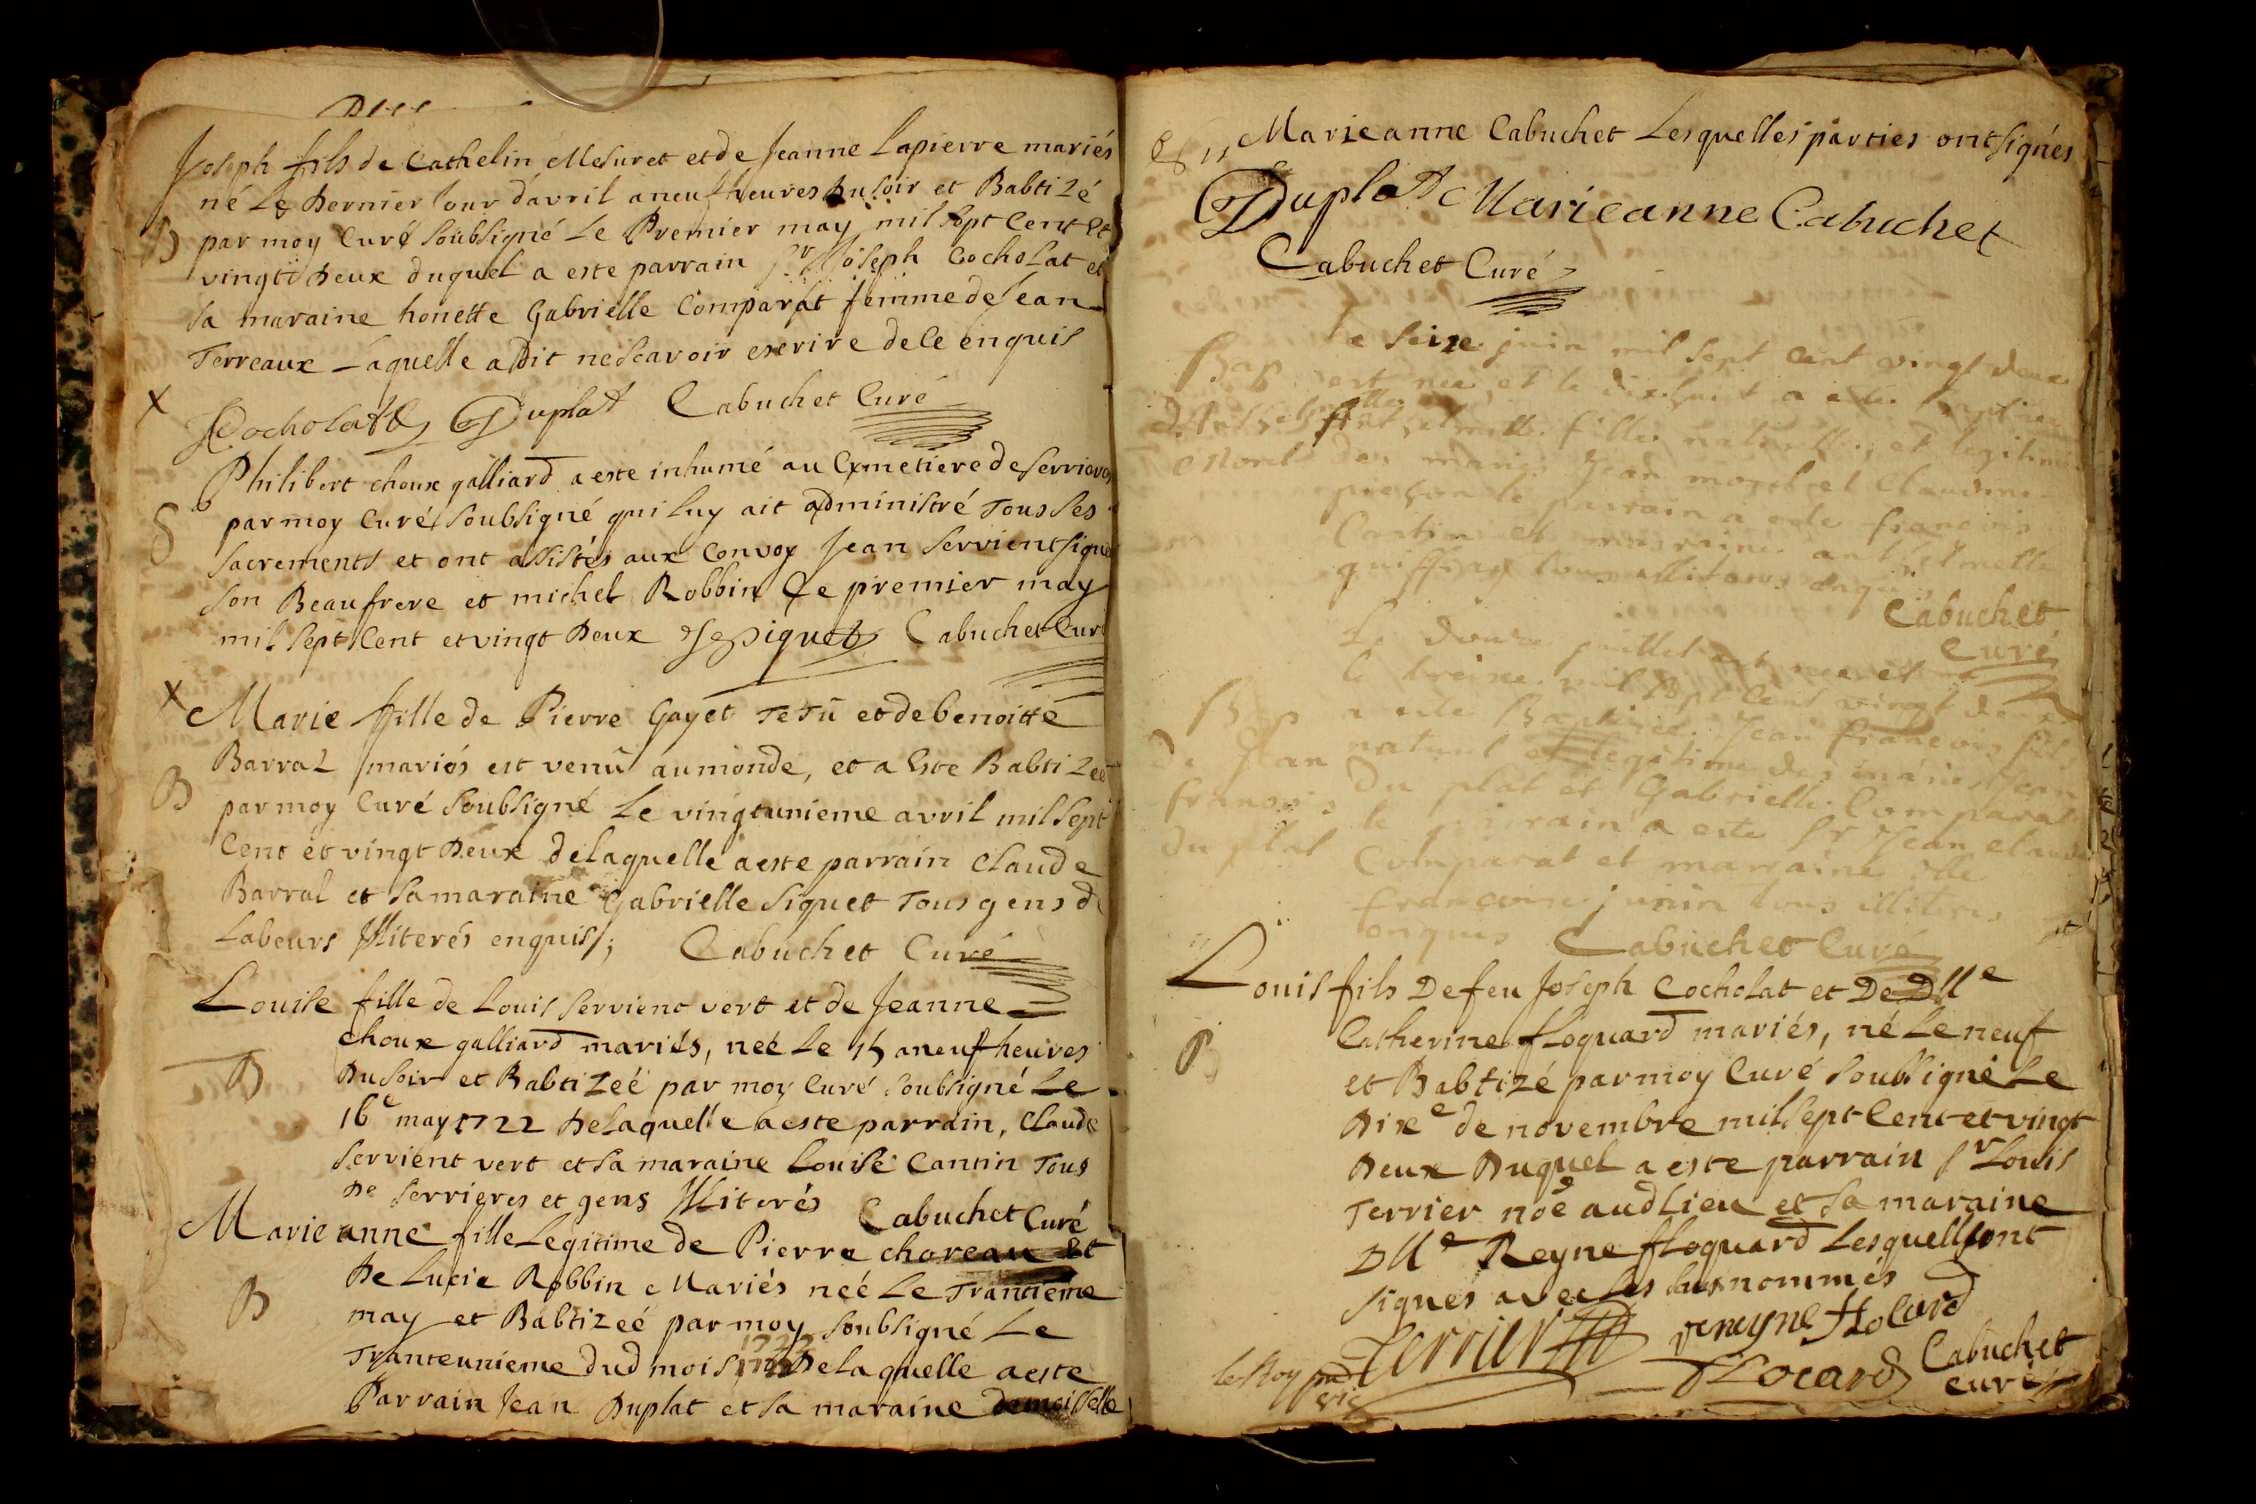 Joseph fils de Cathelin Mesuret et de Jeanne Lapierre mariés
né Le Dernier Jour d'avril a neuf heures Du soir et Babtizé
B
par moy Curé soubsigné Le Premier may mil sept Cent et
vingt Deux duquel a este parrain Sr Joseph Cocholat et
sa maraine honette Gabrielle Comparat femme de Jean
Terreaux Laquelle a Dit ne scavoir escrire de Ce enquis
x
Duplat Cabuchet Curé
Philibert choux galliard a este inhumé au Cymetiere de Serrieres
par moy Curé soubsigné qui luy ait administré Tous ses
S
sacrements et ont assistés aux Convoy Jean Servient
son Beaufrere et michel Robbin Ce premier may
mil sept Cent et vingt Deux Cabuchet Curé
x
Marie fille de Pierre Gayet Tetü et de benoitte
Barral mariés est venü au monde, et a Este Babtizeé
B
par moy Curé soubsigné Le vingtunieme avril mil sept
Cent et vingt Deux de laquelle a este parrain Claude
Barral et sa maraine Gabrielle Siquet Tous gens de
Labeurs Jlliterés enquis; Cabuchet Curé
Louise fille de Louis Servient vert et de Jeanne
choux galliard mariés, neé Le 15 a neuf heures
B
Du soir et Babtizeé par moy Curé soubsigné Le
16e may 1722 De laquelle a este parrain, Claude
Servient vert et sa maraine Louise Cantin Tous
De Serrieres et gens Jlliterés Cabuchet Curé
Marie anne fille Legitime de Pierre choreau Et
De Lucie Robbin Mariés neé Le Trantieme
B
may et Babtizeé par moy soubsigné Le
Tranteunieme dud mois 1722 De laquelle a este
Parrain Jean Duplat et sa maraine demoiselle
Marieanne Cabuchet Lesquelles parties ont signés
Duplat Marieanne Cabuchet
Cabuchet Curé
Le seize juin mil sept cent vingt deux
Bap est neé et le dixhuit a eté baptisée
fille naturelle et legitime
des mariés Jean morel et Claudine
parrain a ete francois
Cantin et marraine anthelmette
tous illiterés enquis
Cabuchet
Curé
Le douze juillet est né et
le treize mil sept cent vingt deux
Bap a este Baptisé Jean francois fils
de Jean naturel et legitime des mariés Jean
francois du plat et Gabrielle Comparat
du plat le parrain a este Sr Jean claude
Comparat et marraine dlle
francoise tous illiteres
enquis Cabuchet Curé
Louis fils De feu Joseph Cocholat et De Dlle
Catherine floquard mariés, né Le neuf
B
et Babtizé par moy Curé soubsigné Le
Dixe de novembre mil sept Cent et vingt
Deux Duquel a este parrain Sr Louis
Terrier noe aud Lieu et sa maraine
Dlle Reyne floquard Lesquells ont
signes avec les susnommés
Terrier reyne flocard
leRoy flocard Cabuchet
curé